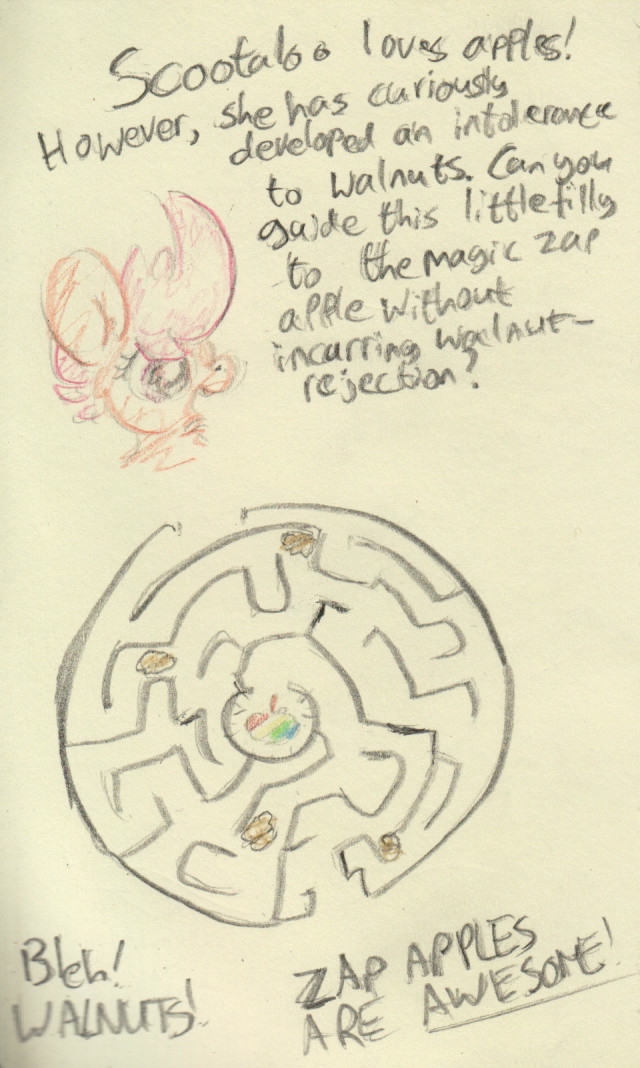 Scootaloo loves apples!
However, she has curiously
developed an intolerance
to walnuts. Can you
guide this little filly
to the magic zap
apple without
incurring walnut-
rejection?
Bleh!
WALNUTS!
ZAP APPLES
ARE AWESOME!